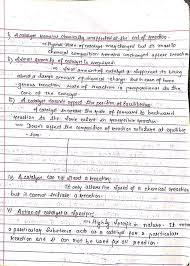 i) A catalyst remains chemically unchanged at the end of reaction :-
Physical state of catalyst may changed but its mass &
chemical composition remains unchanged after reaction
ii) Small quantity of catalyst is required :-
Small amount of catalyst is sufficient to bring
about a large amount of chemical change but in case of homo
genous reaction. Rate of reaction is proportional to the
conc of the catalyst
iii) A catalyst doesn't affect the position of equilibrium :-
A catalyst increases the rate of forward & backward
reaction to the same extent in reversible reaction.
Doesn't affect the composition of reaction mixture at equilib
rium
iv) A catalyst can not start a reaction :-
It only alters the speed of a chemical reaction
but it cannot initiate a reaction.
v) Action of catalyst is specific :-
Highly specific in nature. It
a particular substance acts as a catalyst for a particular
reaction and it can not be used for all reaction.